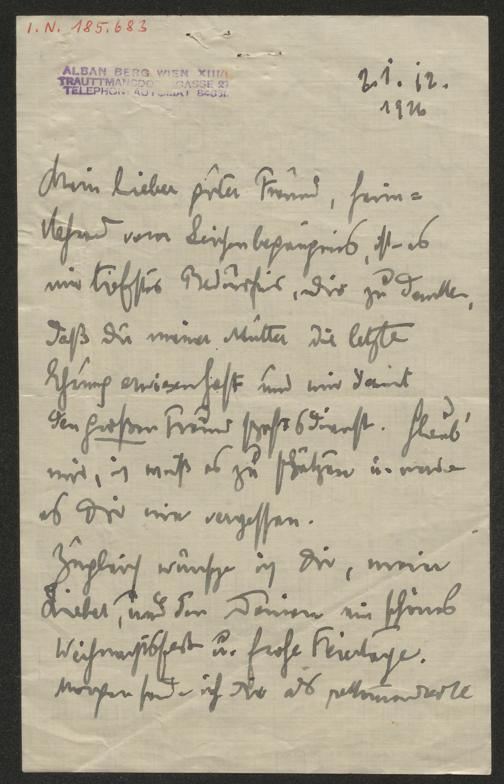 I. N. 185.683
ALBAN BERG WIEN XIII/1
TRAUTTMANSDORFFGASSE 27
TELEPHON: AUTOMAT 84831
21.12.
1926
Mein lieber guter Freund, heim=
kehrend vom Leichenbegängnis, ist es
mir tiefstes Bedürfnis, Dir zu danken,
daß Du meiner Mutter die letzte
Ehrung erwiesen hast und mir damit
den großen Freundschaftsdienst. Glaub'
mir, ich weiß es zu schätzen u. werde
es Dir nie vergessen.
Zugleich wünsche ich Dir, mein
Lieber, und den Deinen ein schönes
Weihnachtsfest u. frohe Feiertage.
Morgen sende ich Dir als rekommandierte